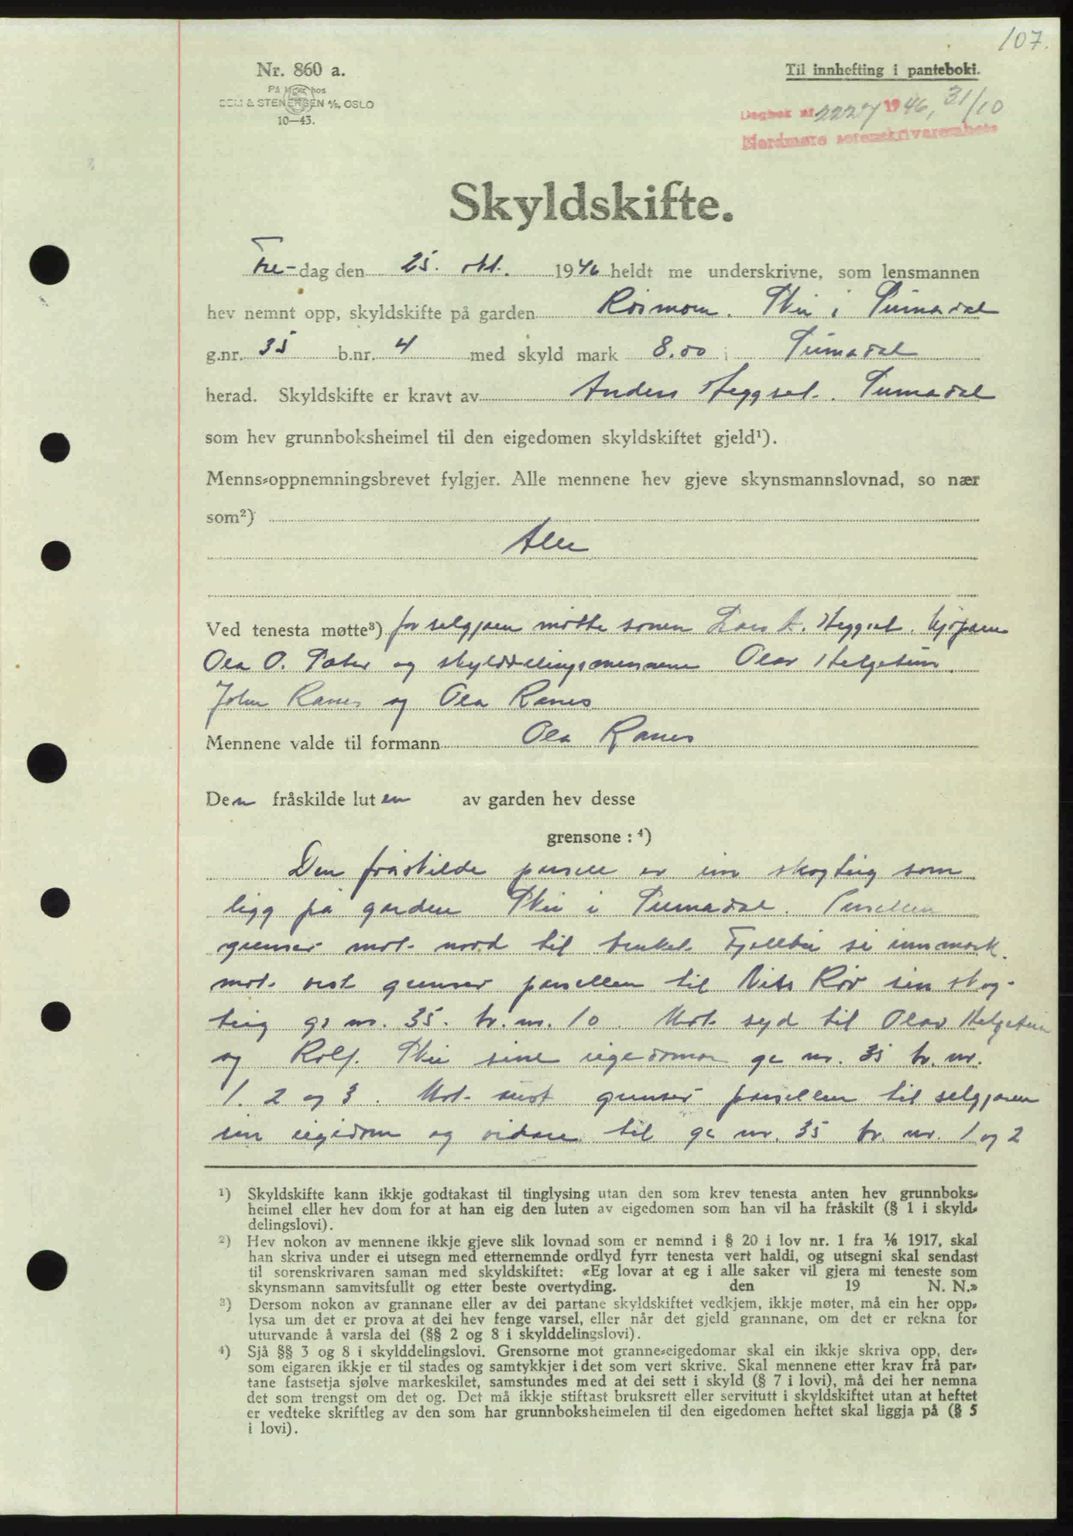 107.
Nr. 860 a.
Til innhefting i panteboki.
På hos
SEM & STENERSEN A/S, OSLO
10—45.
Dagbok nr 2227 1946, 31/10
Nordmøre sorenskrivarembete
Skyldskifte.
Fre-dag den 25. okt. 1946 heldt me underskrivne, som lensmannen
hev nemnt opp, skyldskifte på garden Røsmoen. Skei i Surnadal
g.nr. 35 b.nr. 4 med skyld mark 8.00 i Surnadal
herad. Skyldskifte er kravt av Anders Heggset. Surnadal
som hev grunnboksheimel til den eigedomen skyldskiftet gjeld¹).
Menns-oppnemningsbrevet fylgjer. Alle mennene hev gjeve skynsmannslovnad, so nær
som²)
Alle
Ved tenesta møtte³) for selgjaren møtte sonen Lars A. Heggset. kjøparen
Ola O. Sæter og skylddelingsmennene Olav Helgetun.
John Ranes og Ola Ranes
Mennene valde til formann Ola Ranes
Den fråskilde luten av garden hev desse
grensone : ⁴)
Den fråskilde parsell er ein skogteig som
ligg på garden Skei i Surnadal. Parsellen
grenser mot nord til bruket Fjellbu si innmark.
mot vest grenser parsellen til Nils Røv sin skog-
teig g. nr. 35. br. nr. 10. Mot syd til Olav Helgetun
og Rolf. Skei sine eigedomar g nr. 35 br. nr.
1. 2 og 3. Mot aust grenser parsellen til selgjaren
sin eigedom og vidare til g nr. 35 br. nr. 1 og 2
¹) Skyldskifte kann ikkje godtakast til tinglysing utan den som krev tenesta anten hev grunnboks-
heimel eller hev dom for at han eig den luten av eigedomen som han vil ha fråskilt (§ 1 i skyld-
delingslovi).
²) Hev nokon av mennene ikkje gjeve slik lovnad som er nemnd i § 20 i lov nr. 1 fra ⅙ 1917, skal
han skriva under ei utsegn med etternemnde ordlyd fyrr tenesta vert haldi, og utsegni skal sendast
til sorenskrivaren saman med skyldskiftet: «Eg lovar at eg i alle saker vil gjera mi teneste som
skynsmann samvitsfullt og etter beste overtyding. den 19 N. N.»
³) Dersom nokon av grannane eller av dei partane skyldskiftet vedkjem, ikkje møter, må ein her opp-
lysa um det er prova at dei hev fenge varsel, eller når det gjeld grannane, om det er rekna for
uturvande å varsla dei (§§ 2 og 8 i skylddelingslovi).
⁴) Sjå §§ 3 og 8 i skylddelingslovi. Grensorne mot granne-eigedomar skal ein ikkje skriva opp, der-
som eigaren ikkje er til stades og samtykkjer i det som vert skrive. Skal mennene etter krav frå par-
tane fastsetja sjølve markeskilet, samstundes med at dei sett i skyld (§ 7 i lovi), må dei her nemna
det som trengst om det og. Det må ikkje stiftast bruksrett eller servitutt i skyldskiftet utan at heftet
er vedteke skriftleg av den som har grunnboksheimelen til den eigedomen heftet skal liggja på (§ 5
i lovi).